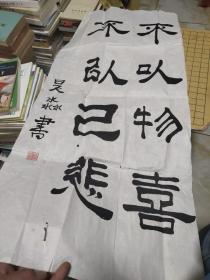 不以物喜
不以己悲
昊淼書